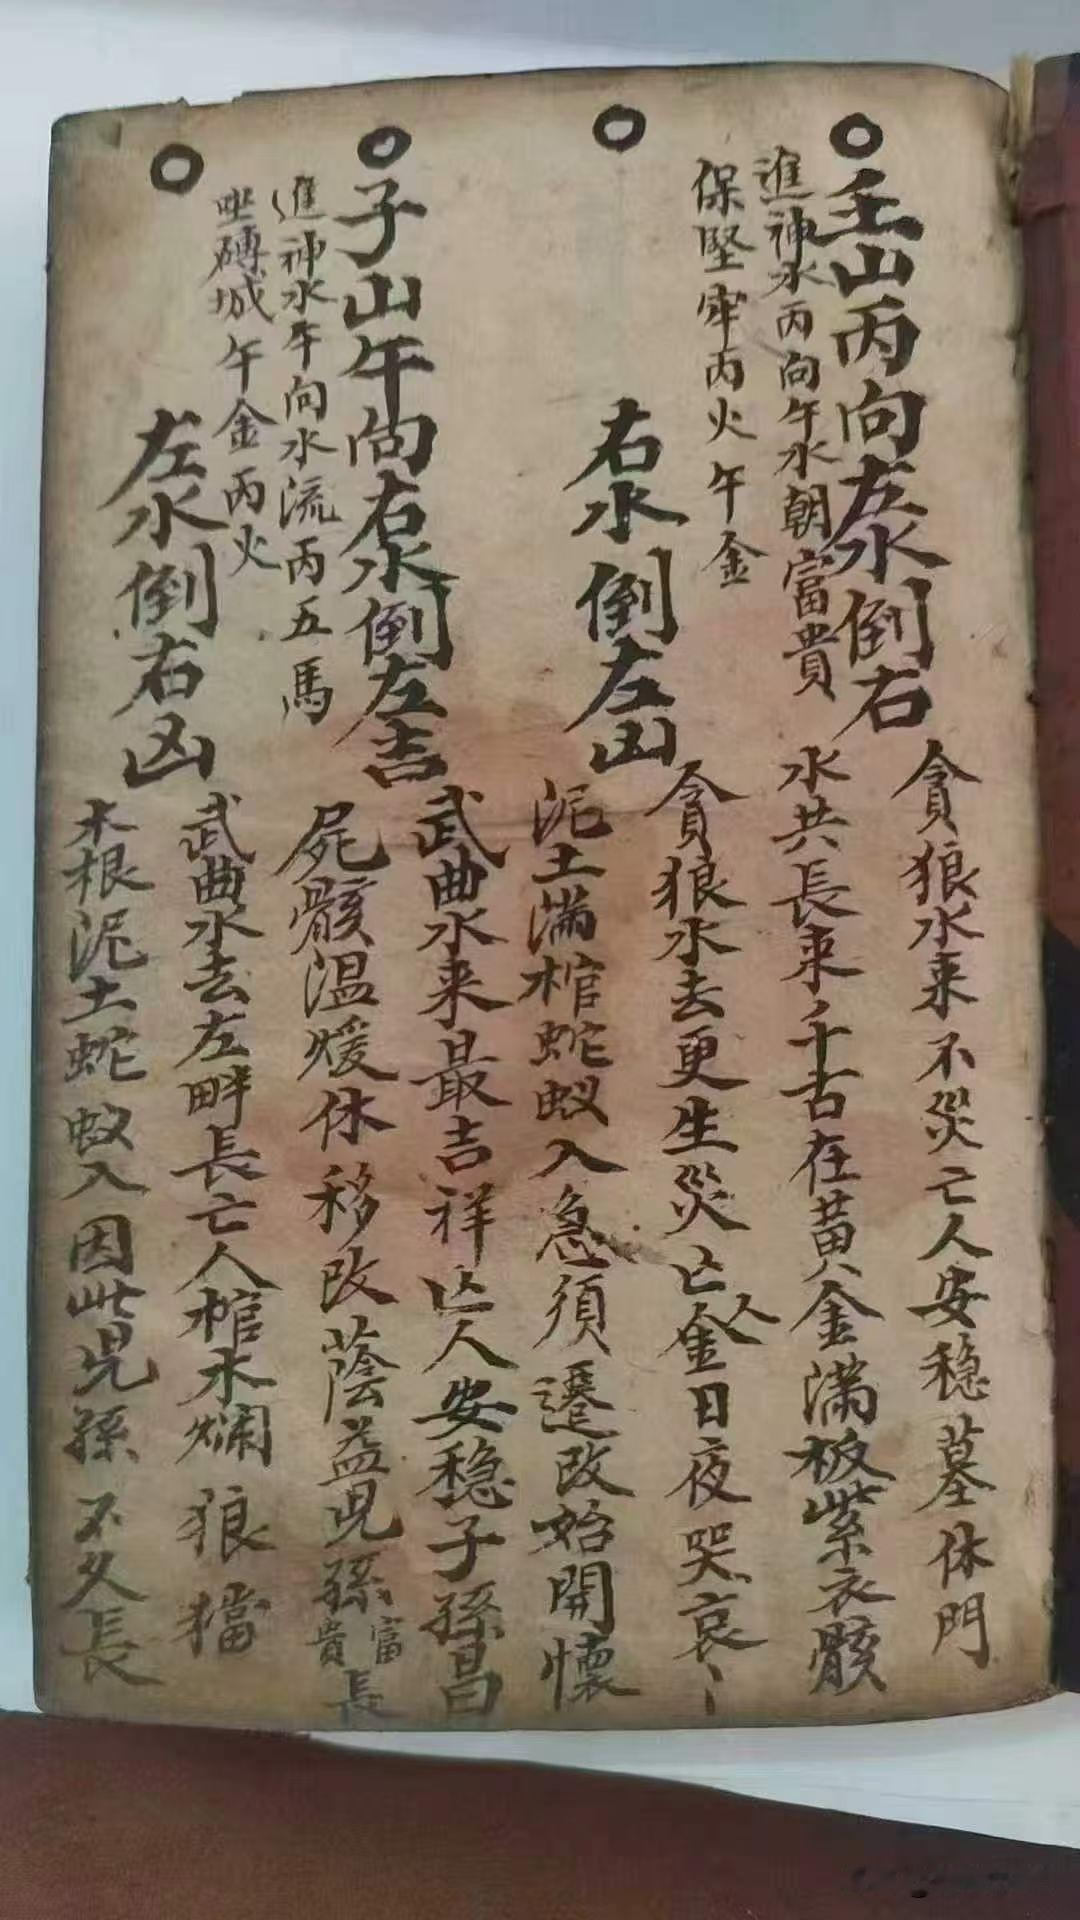 壬山丙向左水倒右
進神水丙向午水朝富貴
保堅牢丙火午金
貪狼水来不災亡人安穏墓休門
水共長来千古在黄金满板紫衣骸
右水倒左山
貪狼水去更生災亡人金日夜哭哀丶
泥土满棺蛇蚁入急須遷改始開懷
子山午向右水倒左吉
進神水午向水流丙五馬
坐磚城午金丙火
武曲水来最吉祥亡人安穏子孫昌
屍骸温煖休移改蔭益児孫富貴長
左水倒右凶
武曲水去左畔長亡人棺水爛狼擋
木根泥土蛇蚁入因此児孫不久長